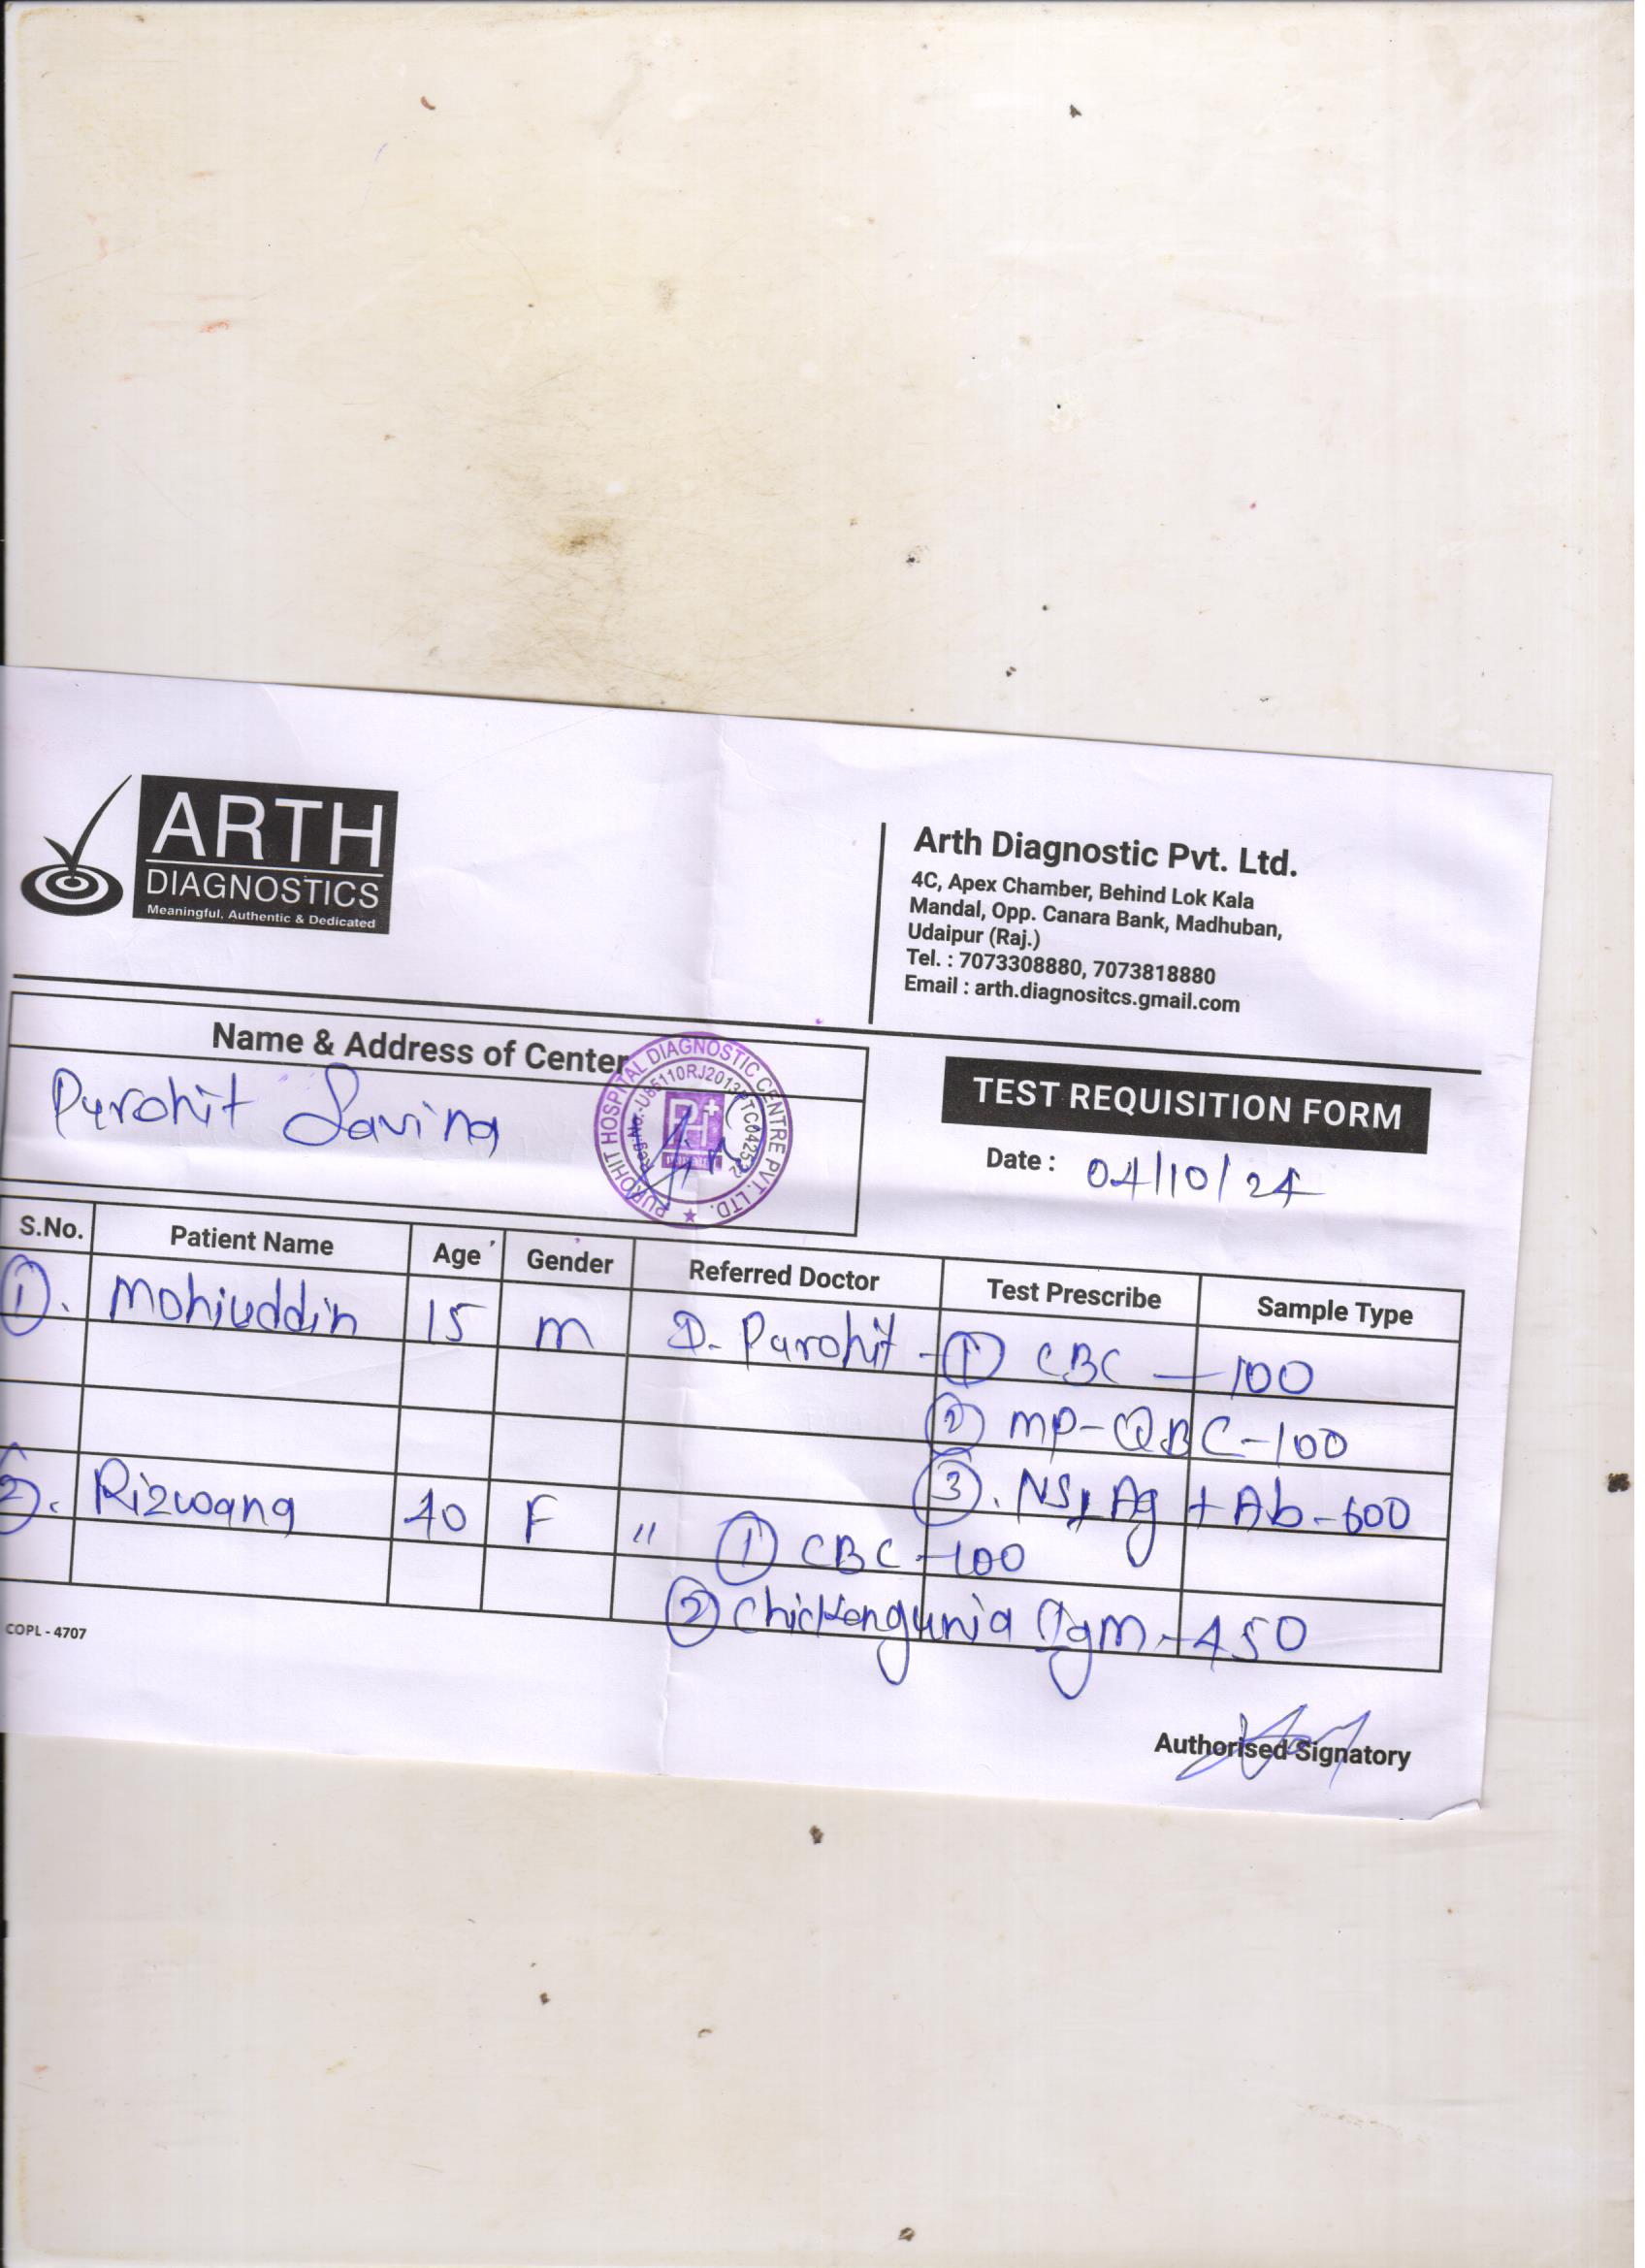 ARTH
DIAGNOSTICS
Meaningful, Authentic & Dedicated
Arth Diagnostic Pvt. Ltd.
4C, Apex Chamber, Behind Lok Kala
Mandal, Opp. Canara Bank, Madhuban,
Udaipur (Raj.)
Tel. : 7073308880, 7073818880
Email : arth.diagnositcs.gmail.com
Name & Address of Center
Purohit Savina
PUROHIT HOSPITAL DIAGNOSTIC CENTRE PVT. LTD.
TEST REQUISITION FORM
Date : 04/10/24
S.No. Patient Name Age Gender Referred Doctor Test Prescribe Sample Type
1. Mohiuddin 15 M D. Purohit - 1 CBC - 100
2 MP-QBC-100
3. NS1 Ag + Ab-600
2. Rizwana 40 F " 1 CBC-100
2 Chickengunia IgM-450
COPL - 4707
Authorised Signatory